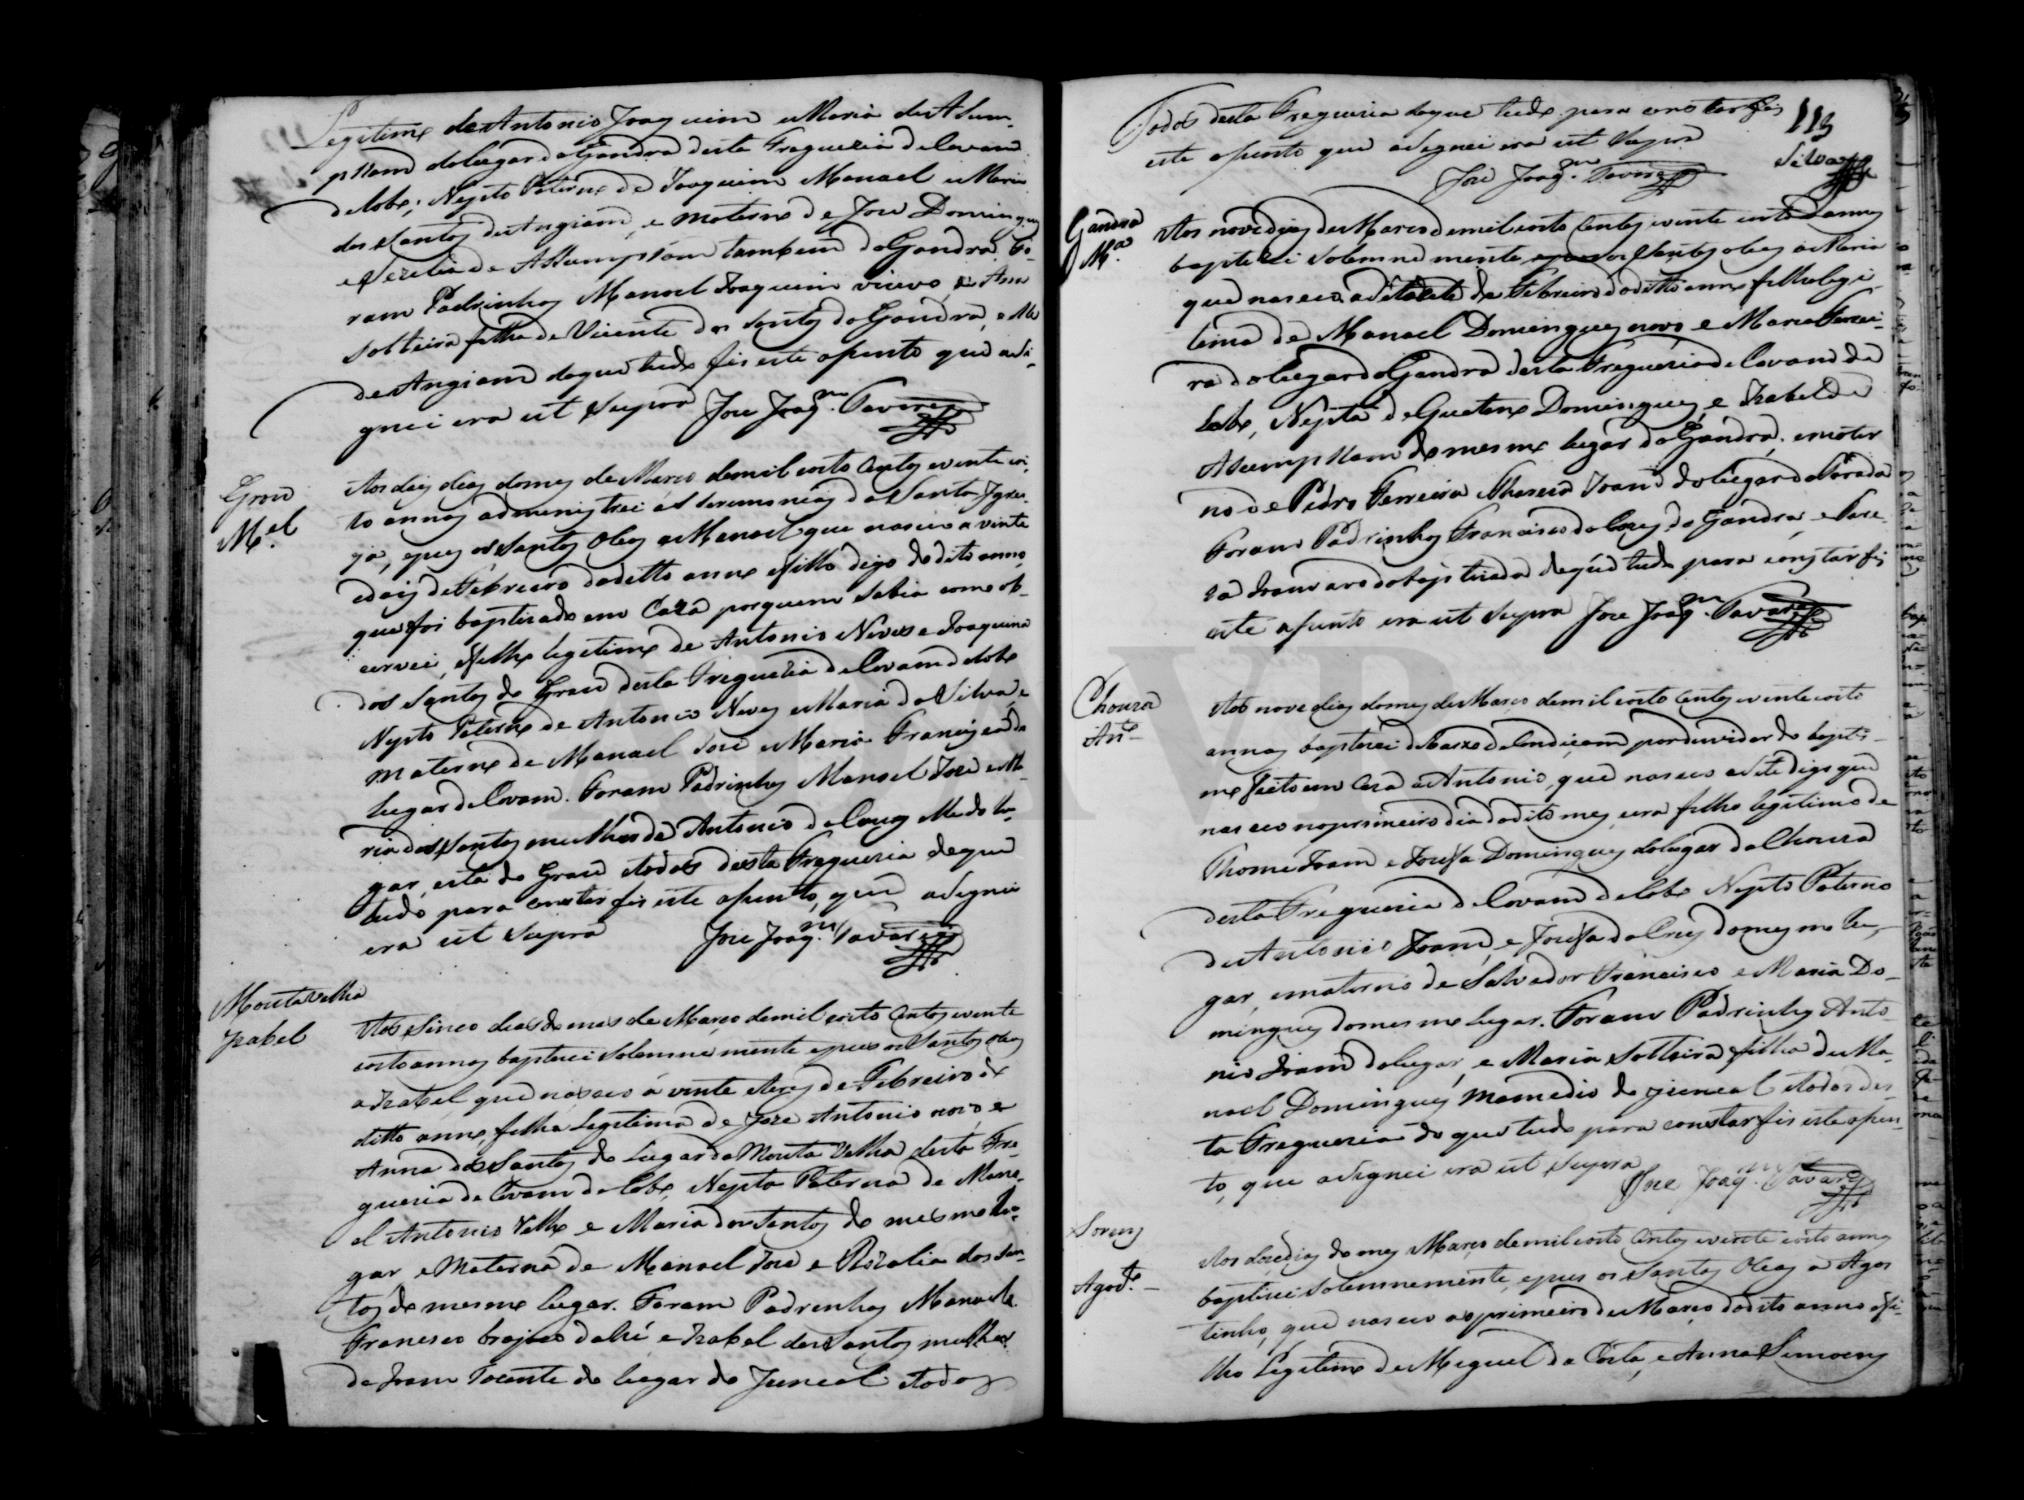 Legitimo de Antonio Joaquim e Maria da Asum-
psam do lugar da Gandra desta Freguezia de Covam
do Lobo; Nepto Paterno de Joaquim Manoel e Maria
dos Santos de Angiam, e materno de Joze Domingues
e de Assumpsam tambem da Gandra, Fo-
ram Padrinhos Manoel Joaquim viuvo, e Anna
solteira filha de Vicente dos Santos da Gandra,
de Angiam do que tudo fis este asento que asi-
gnei era ut supra Joze Joaqm. Tavares
Grou
Mel.
Aos dois dias do mes de Março de mil oito centos e vinte oi-
to annos administrei as seremonias da Santa Igre-
ja, e pus os Santos Oleos a Manoel que nasceo a vinte
e dois de Febreiro do ditto anno e filho digo do dito anno
que foi baptizado em Caza por quem sabia como ob-
servei, e filho legitimo de Antonio Neves e Joaquina
dos Santos do Grou desta Freguezia de Covam do Lobo
Nepto Paterno de Antonio Neves e Maria da Silva, e
Materno de Manoel Joze e Maria Francisca do
lugar de Covam. Foram Padrinhos Manoel Joze e Ma-
ria dos Santos mulher de Antonio da Cruz do lu-
gar, esta do Grou e todos desta Freguezia de que
tudo para constar fis este asento, que asignei
era ut supra Joze Joaqm. Tavares
Mouta Velha
Izabel
Aos sinco dias do mes de Março de mil oito centos e vinte
oito annos baptizei solemnemente e pus os Santos Oleos
a Izabel que nasceo a vinte e tres de Febreiro do
ditto anno, filha Legitima de Joze Antonio novo e
Anna dos Santos do Lugar da Mouta Velha desta Fre-
guezia de Covam do Lobo, Nepta Paterna de Mano-
el Antonio Velho e Maria dos Santos do mesmo Lu-
gar e Materna de Manoel Joze e Rozalia dos San-
tos do mesmo lugar. Foram Padrinhos Manoel
Francisco e Izabel dos Santos mulher
de Joam Vicente do lugar do Juncal e todos
Todos desta Freguezia do que tudo para constar fis
este asento que asignei era ut supra
Joze Joaqm. Tavares
113
Silva
Gandra
Ma.
Aos nove dias de Março de mil oito centos e vinte oito annos
baptizei solemnemente, e pus os Santos oleos a Maria
que nasceo a de Febreiro do ditto anno filha legi-
tima de Manoel Domingues novo e Maria Ferrei-
ra do lugar da Gandra desta Freguezia de Covam do
Lobo, Nepta de Domingues, e Izabel da
Assumpsam do mesmo lugar da Gandra, e mater
no de Pedro Ferreira e Joana do lugar da
Foram Padrinhos Francisco da Cruz da Gandra, e
da baptizada de que tudo para constar fis
este asento era ut supra Joze Joaqm. Tavares
Chouza
Anto.
Aos nove dias do mes de Março de mil oito centos e vinte oito
annos baptizei debaxo de Condiçam por duvidar do bapti-
mo feito em Caza a Antonio, que nasceo a sete digo que
nasceo no primeiro dia do dito mes, e era filho legitimo de
Thome Joam e Jozefa Domingues do lugar da Chouza
desta Freguezia de Covam do Lobo Nepto Paterno
de Antonio Joam, e Jozefa da Cruz do mesmo lu-
gar, e materno de Salvador Francisco e Maria Do-
mingues do mesmo lugar. Foram Padrinhos Anto-
nio Joam do lugar, e Maria solteira filha de Ma-
noel Domingues do Juncal e todos des-
ta Freguezia do que tudo para constar fis este asen-
to, que asignei era ut supra
Joze Joaqm. Tavares
Agosto.
Aos doze dias do mes Março de mil oito centos e vinte oito annos
baptizei solemnemente, e pus os Santos Oleos a Agos
tinho, que nasceo ao primeiro de Março do dito anno e fi-
lho Legitimo de Miguel da Costa, e Anna Simoens